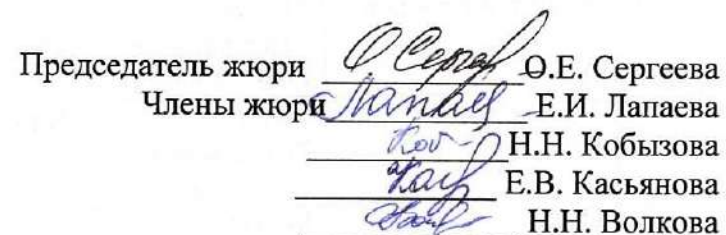 Председатель жюри О.Е. Сергеева
Члены жюри Лапаев Е.И. Лапаева
Н.Н. Кобызова
Е.В. Касьянова
Н.Н. Волкова